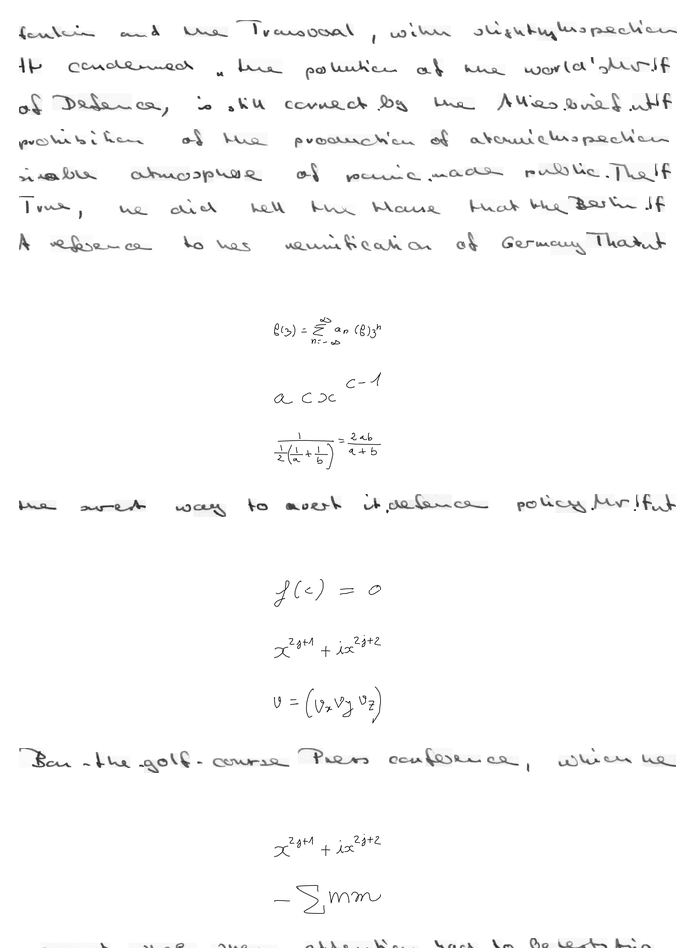 and the Transvaal, with slightly inspection
It condemned " the pollution of the world's Mr. If
of Defence, is still correct by the Allies. brief. ut If
prohibition of the production of atomic inspection
atmosphere of panic. made public. The If
True, he did tell the House that the Berlin. If
A reference to hes reunification of Germany That ut
f(z) = ∑_{n=-∞}^{∞} a_n (f) z^n
a c x^{c-1}
\frac{1}{\frac{1}{2}(\frac{1}{a} + \frac{1}{b})} = \frac{2ab}{a+b}
the surest way to avert it. defence policy. Mr. If ut
f(c) = 0
x^{2j+1} + ix^{2j+2}
v = (v_x v_y v_z)
Ban-the-golf-course Press conference, which he
x^{2j+1} + ix^{2j+2}
- ∑ m m
attention had to be